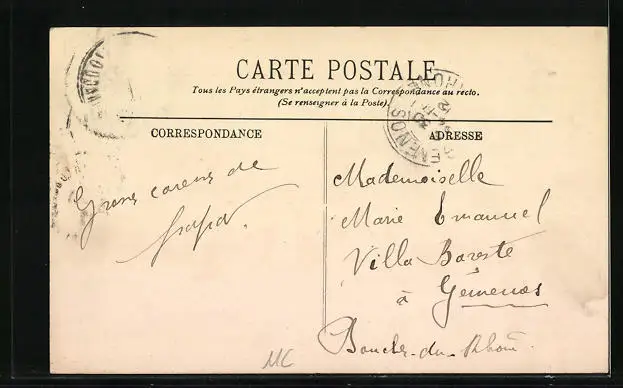 CARTE POSTALE
Tous les Pays étrangers n'acceptent pas la Correspondance au recto.
(Se renseigner à la Poste).
CORRESPONDANCE
ADRESSE
GEMENOS
Gros de
papa.
Mademoiselle
Marie Emanuel
Villa Bareste
à Gémenos
Bouches-du-Rhône
MC